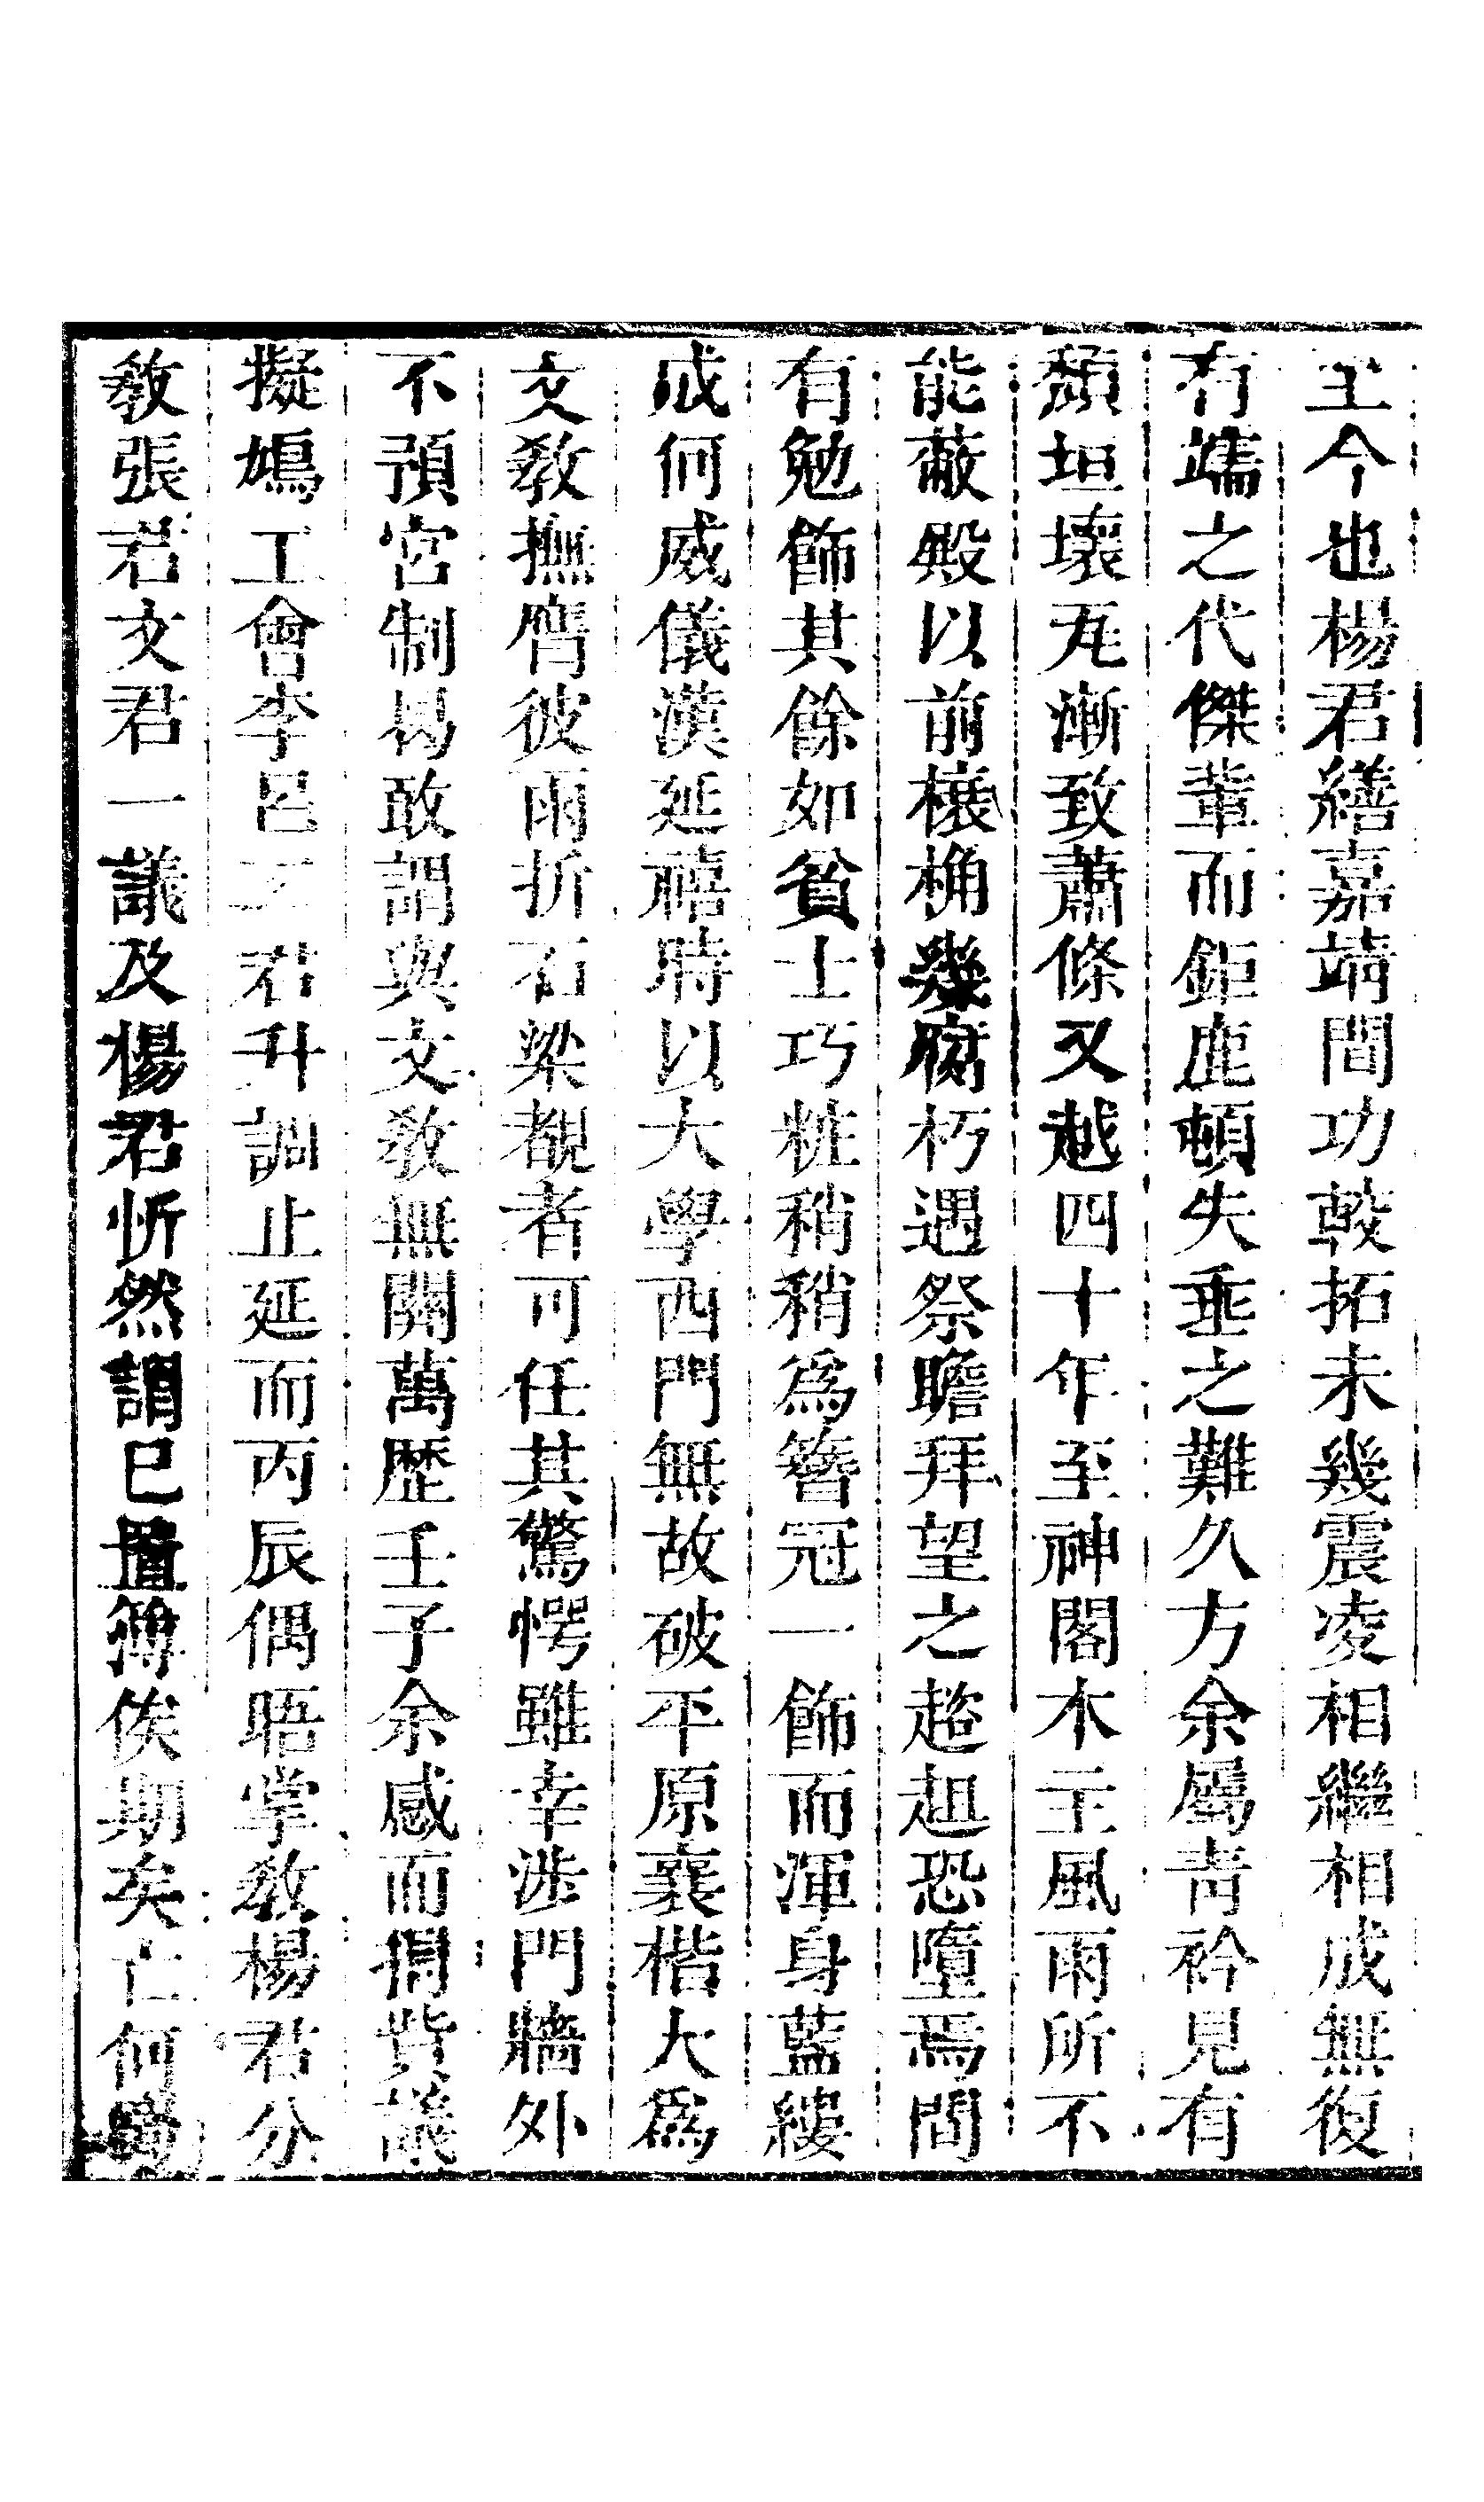 至今也楊君繕嘉靖間功乾拓未幾震凌相繼相成無復
有端之代傑輩而鉅鹿頓失垂之難久方余屬青衿見有
頹垣壞瓦漸致蕭條又越四十年至神閣木主風雨所不
能蔽殿以前榱桷幾腐朽遇祭瞻拜望之趑趄恐墮焉間
有勉飾其餘如貧士巧粧稍稍爲簪冠一飾而渾身藍縷
成何威儀漢延禧時以大學西門無故破平原襄楷大爲
文教撫膺彼雨折石梁覩者可任其驚愕雖幸涉門牆外
不預宮制曷敢謂與文教無關萬歷壬子余感而捐貲議
擬鳩工會李呂二君升調止延而丙辰偶晤掌教楊君分
教張君文君一議及楊君忻然謂已置簿俟期矣亡何